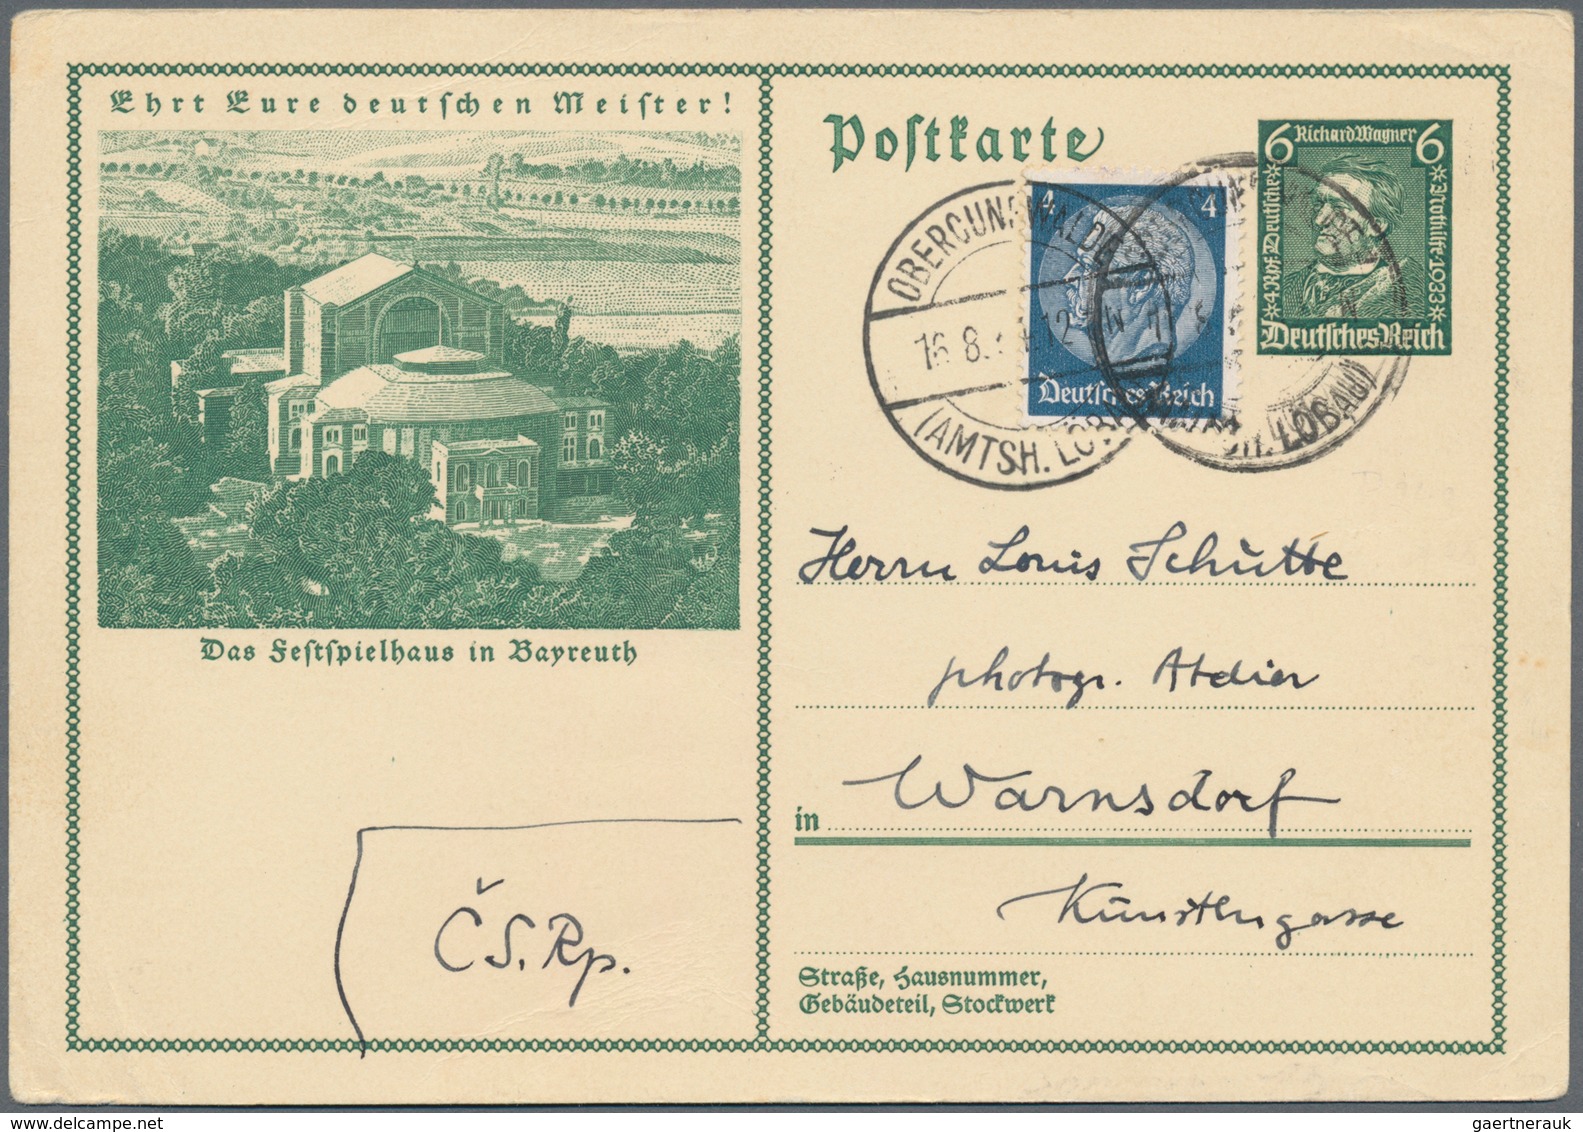 Ehrt Eure deutschen Meister!
Das Festspielhaus in Bayreuth
ČS.Rp.
Postkarte
6 Richard Wagner 6
4. Rpf. Deutsche
Nothilfe 1933
Deutsches Reich
4 4
Deutsches Reich
OBERCUNEWALDE
16.8. 12
(AMTSH. LÖBAU)
Herrn Louis Schütte
photogr. Atelier
in Warnsdorf
Künstlergasse
Straße, Hausnummer,
Gebäudeteil, Stockwerk
gaertnerauk